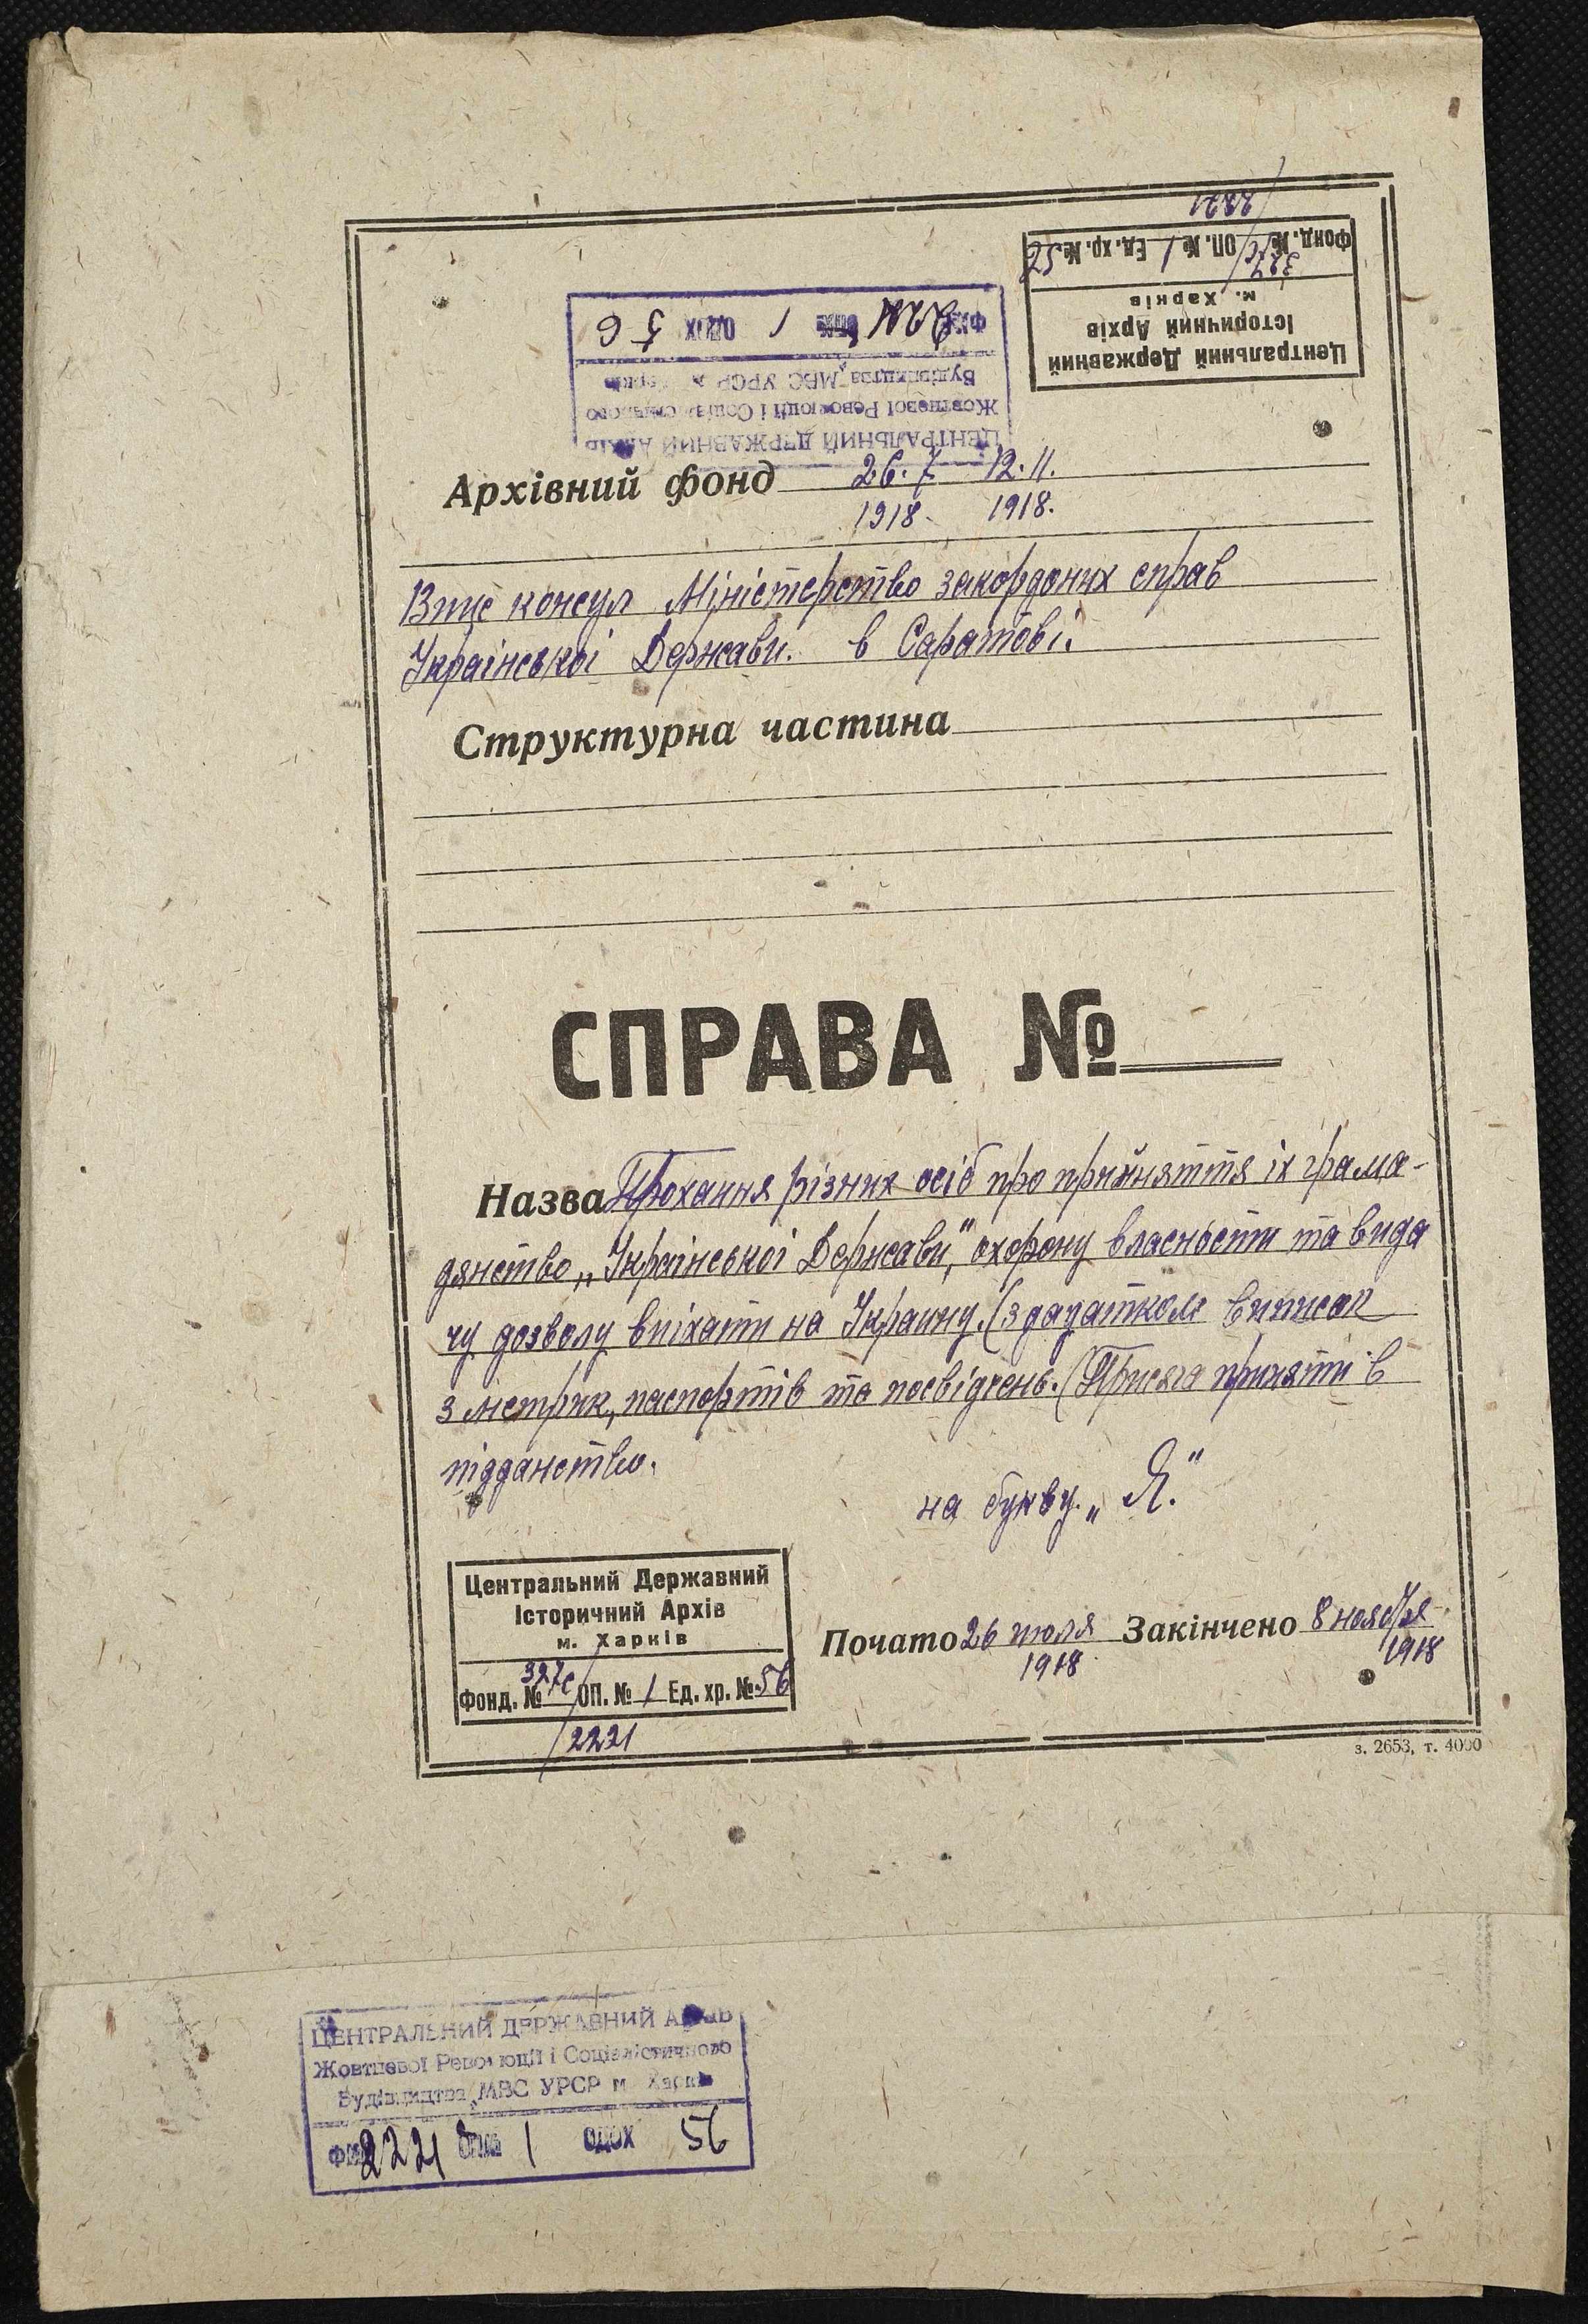 2221
Фонд. № 327с/ ОП. № 1 Ед. хр. № 56
м. Харків
Історичний Архів
Центральний Державний
ФИ№ 2221 ОП№ 1 ОДОХ 56
Будівництва МВС УРСР м. Харків
Жовтневої Революції і Соціалістичного
ЦЕНТРАЛЬНИЙ ДЕРЖАВНИЙ АРХІВ
Архівний фонд 26.7 — 12.11.
1918. 1918.
Вице консул Міністерство закордоних справ
Української Держави. в Саратові.
Структурна частина
СПРАВА №
Назва Прохання різних осіб про прийняття іх грама-
дянство „Української Держави“, охорону власности та вида
чу дозволу впіхати на Украину. (з дадатком виписок
з метрик, паспортів та посвідчень. (Присяга приняти в
підданство.
на букву „Я.“
Центральний Державний
Історичний Архів
м. Харків
Фонд. № 327с/ ОП. № 1 Ед. хр. № 56
/2221
Почато 26 июля Закінчено 8 ноября
1918 1918
з. 2653, т. 4000
ЦЕНТРАЛЬНИЙ ДЕРЖАВНИЙ АРХІВ
Жовтневої Революції і Соціалістичного
Будівництва МВС УРСР м. Харків
2221 ОП№ 1 ОДОХ 56